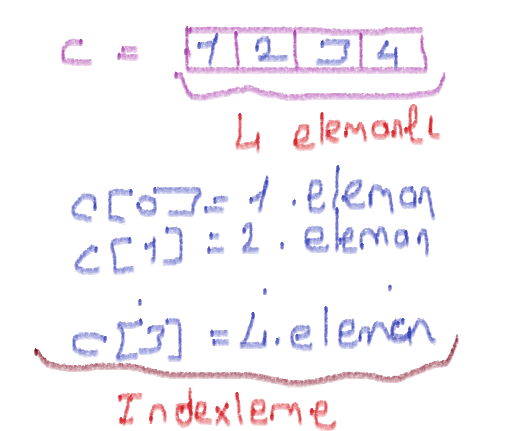 c = 1 2 3 4
4 elemanlı
c[0] = 1. eleman
c[1] = 2. eleman
. . .
c[3] = 4. eleman
Indexleme